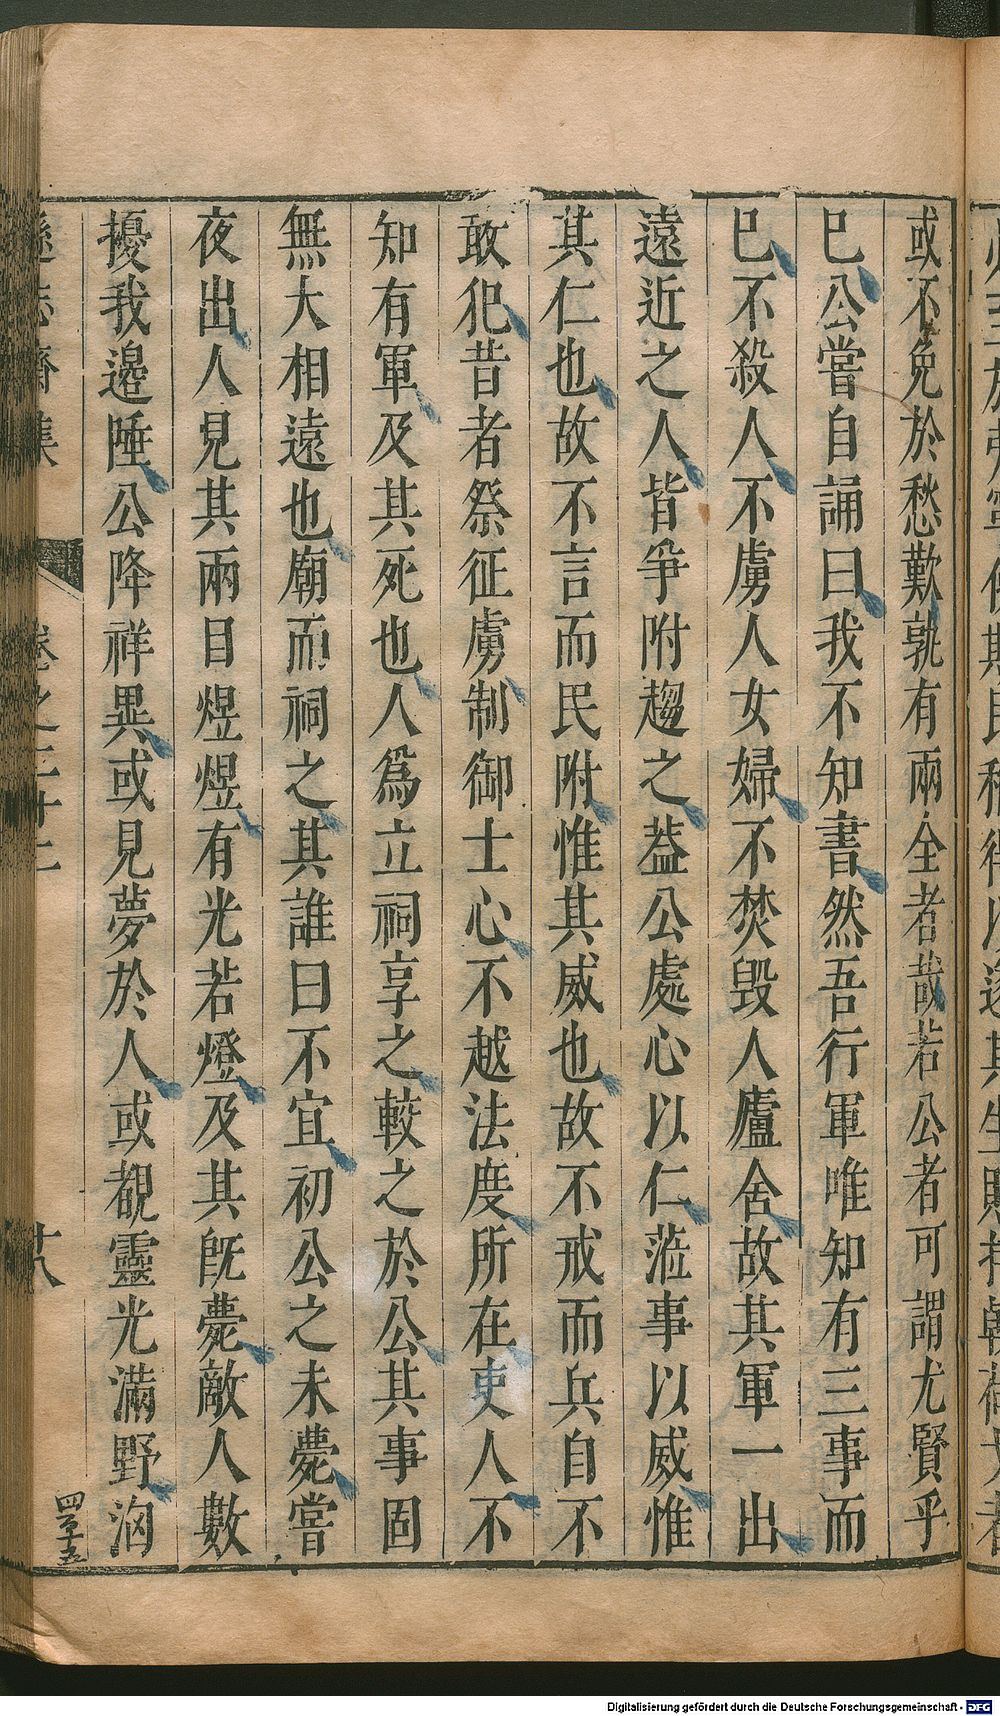 或不免於愁歎孰有兩全者哉若公者可謂尤賢乎
已公嘗自誦曰我不知書然吾行軍唯知有三事而
已不殺人不虜人女婦不焚毀人廬舍故其軍一出
遠近之人皆爭附趨之葢公處心以仁蒞事以威惟
其仁也故不言而民附惟其威也故不戒而兵自不
敢犯昔者祭征虜制御士心不越法度所在吏人不
知有軍及其死也人爲立祠享之較之於公其事固
無大相遠也廟而祠之其誰曰不宜初公之未薨嘗
夜出人見其兩目煜煜有光若燈及其旣薨敵人數
擾我邊陲公降祥異或見夢於人或覩靈光滿野洶
遜志齋集
卷之二十二
廿八
四百十五
Digitalisierung gefördert durch die Deutsche Forschungsgemeinschaft - DFG